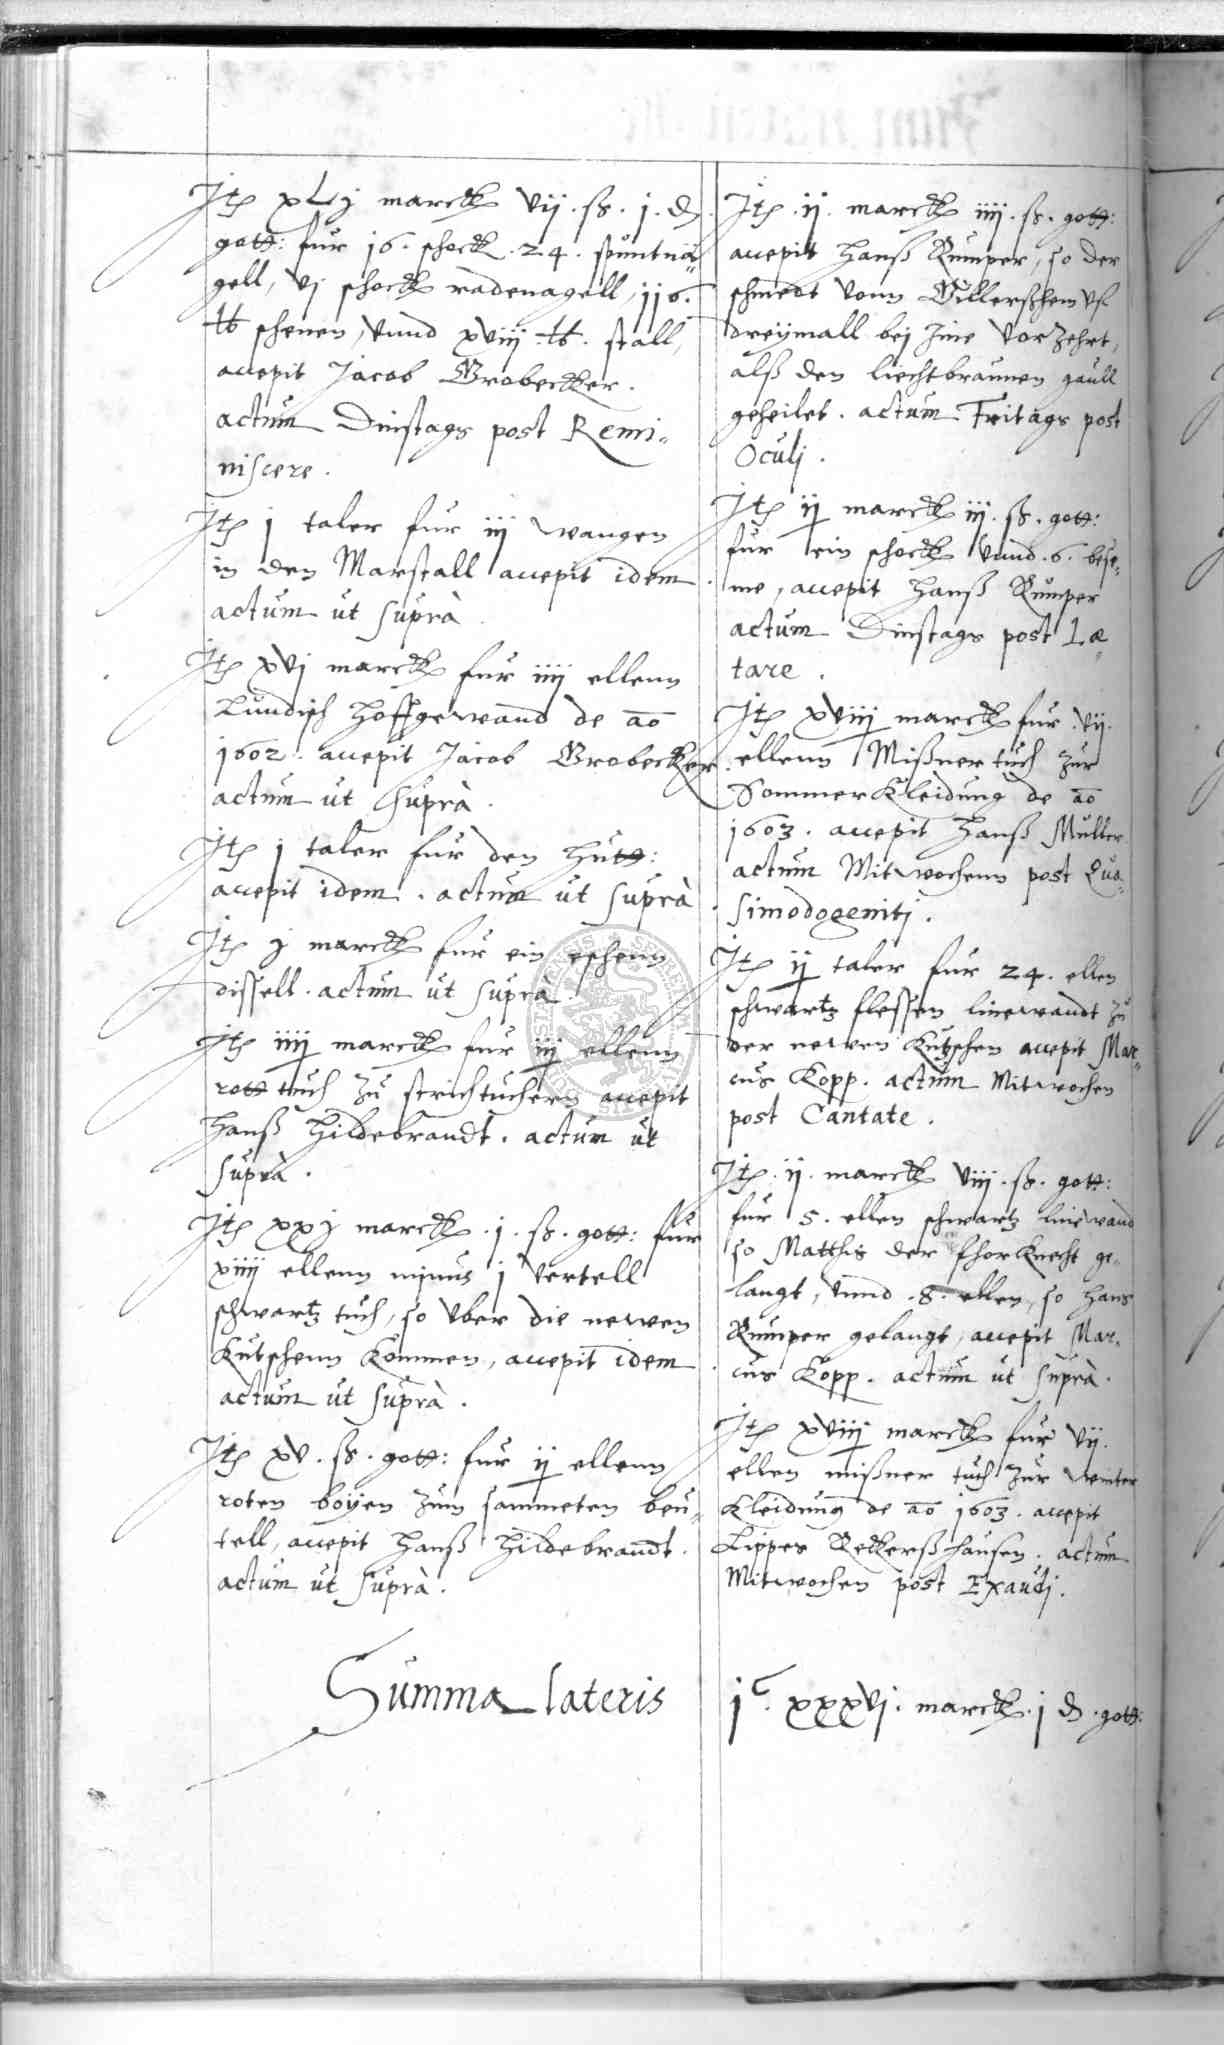 Jtem xLj marck vij . ß . j . d
gott: fur 16 . schock . 24 . spuntnä„
gell, vj schock radenagell, 116.
lb schenen, vnnd xviij . lb . stall,
accepit Jacob Grobecker.
actum Dinstags post Remi„
niscere .
Jtem j taler fur iij wangen
in den Marstall accepit idem
actum ut suprà .
Jtem xvj marck fur iiij ellenn
Lundisch Hoffgewand de ao
1602 . accepit Jacob Grobecker
actum ut suprà .
Jtem j taler fur den Hutt:
accepit idem . actum ut suprà
Jtem j marck fur ein eschenn
dissell . actum ut supra .
Jtem iiij marck fur iij ellenn
rott tuch zu strichtuchern accepit
Hanß Hildebrandt . actum ut
suprà .
Jtem xxj marck . j . ß . gott: fur
xiiij ellenn minus j vertell
schwartz tuch, so vber die newen
Kutschenn kommen, accepit idem
actum ut suprà .
Jtem xv . ß . gott: fur ij ellenn
roten boyen zum sammeten beu„
tell, accepit Hanß Hildebrandt .
actum ut suprà .
Summa lateris
Jtem . ij . marck iiij . ß . gott:
accepit Hanß Rumper, so der
schmedt vonn vf
dreymall bej Jme vorzehrt,
alß den liechtbraunen gaull
geheilet . actum Fritags post
Oculj .
Jtem ij marck iij . ß . gott:
fur ein schock vnnd . 6 . bese„
me, accepit Hanß Rumper
actum Dinstags post Læ„
tare .
Jtem xviij marck fur . vij .
ellenn Mißner tuch zur
Sommer Kleidung de ao
1603 . accepit Hanß Muller
actum Mitwochenn post Qua„
simodogenitj .
Jtem ij taler fur 24 . ellen
schwartz flessen linewandt zu
der newen Kutschen accepit Mar„
cus Kopp . actum Mitwochen
post Cantate .
Jtem . ij . marck viij . ß . gott:
fur 5 . ellen schwartz linewand
so Matthis der fhorknecht ge„
langt, vnnd . 8 . ellen, so Hans
Rumper gelangt, accepit Mar„
cus Kopp . actum ut suprà .
Jtem xviij marck fur vij .
ellen mißner tuch zur winter
Kleidung de ao 1603 . accepit
Lippes Reckerßhausen . actum
Mitwochen post Exaudj .
jC . xxxvj . marck . j d . gott: